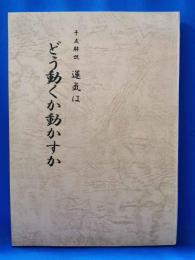 干支解説 運気は
どう動くか動かすか